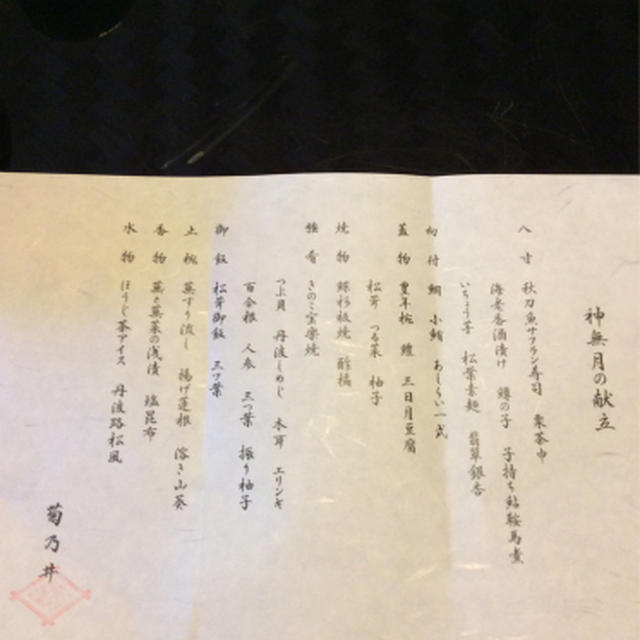 神無月の献立
八寸 秋刀魚サフラン寿司 栗茶巾
海老老酒漬け 鱧の子 子持ち鮎鞍馬煮
いちょう芋 松葉素麺 翡翠銀杏
向付 鯛 小鮪 あしらい一式
蓋物 豊年椀 鱧 三日月豆腐
松茸 つる菜 柚子
焼物 鰆杉板焼 酢橘
強肴 きのこ宝楽焼
つぶ貝 丹波しめじ 木茸 エリンギ
百合根 人参 三つ葉 振り柚子
御飯 松茸御飯 三つ葉
止椀 蕪すり流し 揚げ蓮根 溶き山葵
香物 蕪と蕪菜の浅漬 塩昆布
水物 ほうじ茶アイス 丹波路松風
菊乃井